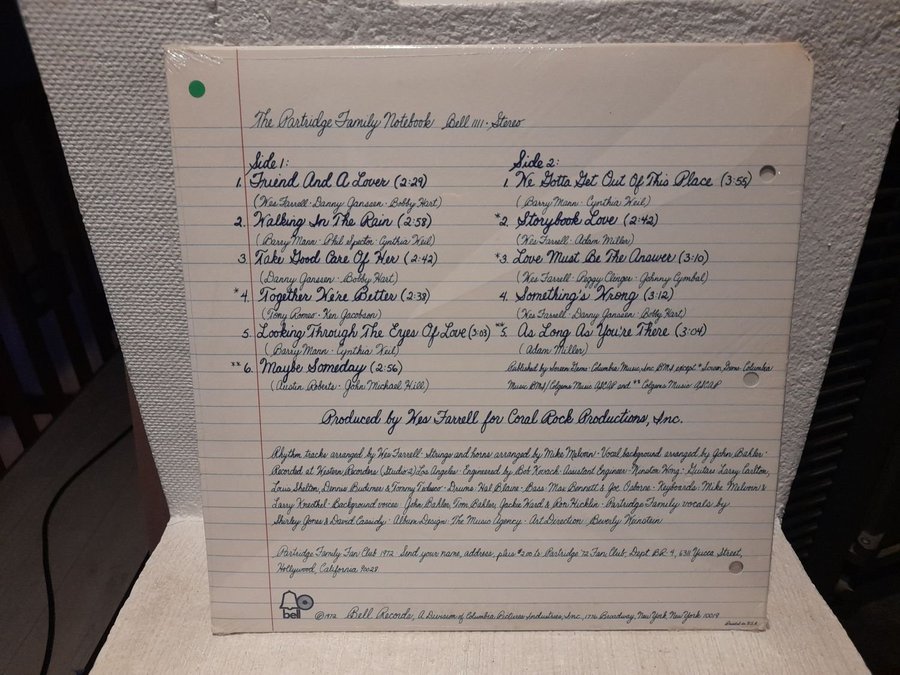 The Partridge Family Notebook Bell 1111 · Stereo
Side 1:
1. Friend And A Lover (2:29)
(Wes Farrell · Danny Janssen · Bobby Hart)
2. Walking In The Rain (2:58)
(Barry Mann · Phil Spector · Cynthia Weil)
3. Take Good Care Of Her (2:42)
(Danny Janssen · Bobby Hart)
*4. Together We're Better (2:38)
(Tony Romeo · Ken Jacobson)
5. Looking Through The Eyes Of Love (3:03)
(Barry Mann · Cynthia Weil)
**6. Maybe Someday (2:56)
(Austin Roberts · John Michael Hill)
Side 2:
1. We Gotta Get Out Of This Place (3:55)
(Barry Mann · Cynthia Weil)
*2. Storybook Love (2:42)
(Wes Farrell · Adam Miller)
*3. Love Must Be The Answer (3:10)
(Wes Farrell · Peggy Clinger · Johnny Cymbal)
4. Something's Wrong (3:12)
(Wes Farrell · Danny Janssen · Bobby Hart)
**5. As Long As You're There (3:04)
(Adam Miller)
Published by Screen Gems-Columbia Music, Inc. BMI except *Screen Gems-Columbia
Music BMI/Colgems Music ASCAP and **Colgems Music ASCAP
Produced by Wes Farrell for Coral Rock Productions, Inc.
Rhythm tracks arranged by Wes Farrell · Strings and horns arranged by Mike Melvoin · Vocal background arranged by John Bahler
Recorded at Western Recorders (Studio 2) Los Angeles · Engineered by Bob Kovach · Assistant Engineer · Winston Wong · Guitars Larry Carlton,
Louis Shelton, Dennis Budimer & Tommy Tedesco · Drums Hal Blaine · Bass Max Bennett & Joe Osborne · Keyboards · Mike Melvoin &
Larry Knechtel · Background voices John Bahler, Tom Bahler, Jackie Ward & Ron Hicklin · Partridge Family vocals by
Shirley Jones & David Cassidy · Album Design The Music Agency · Art Direction Beverly Weinstein
Partridge Family Fan Club 1972 Send your name, address, plus $2.00 to Partridge '72 Fan Club, Dept BR 4, 6311 Yucca Street,
Hollywood, California 90028
bell ©1972 Bell Records, A Division of Columbia Pictures Industries, Inc., 1776 Broadway, New York, New York 10019
Printed in U.S.A.